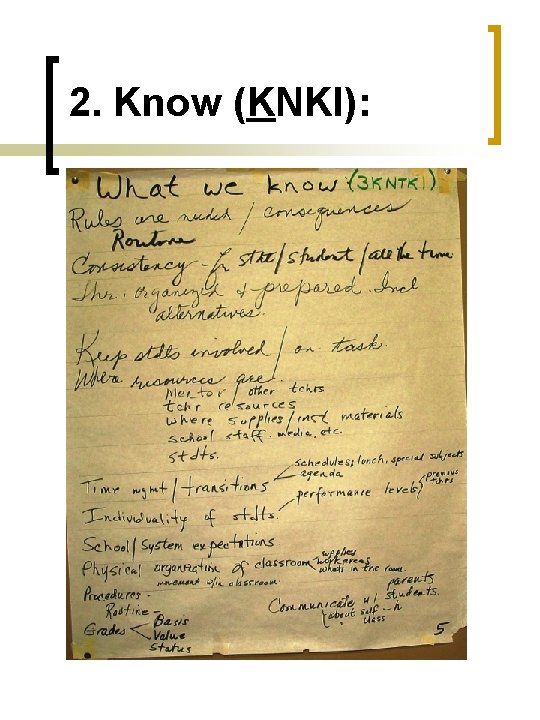 2. Know (KNKI):
What we know (3KNTKI)
Rules are needed / consequences
Routine
Consistency - for state / student / all the time
Thr. organized & prepared. Incl
alternatives.
Keep stdts involved / on task.
Where resources are.
Mentor / other tchrs
tchr resources
where supplies / inst materials
school staff. media, etc.
stdts.
Time mgmt / transitions schedules, lunch, special subjects
agenda
Individuality of stdts. performance levels previous tchrs
School / System expectations
Physical organization of classroom supplies
work areas
what's in the room.
movement w/in classroom.
Procedures -
Routine -
Grades Basis
Value
Status
Communicate w/ parents
students.
about self - n
class
5